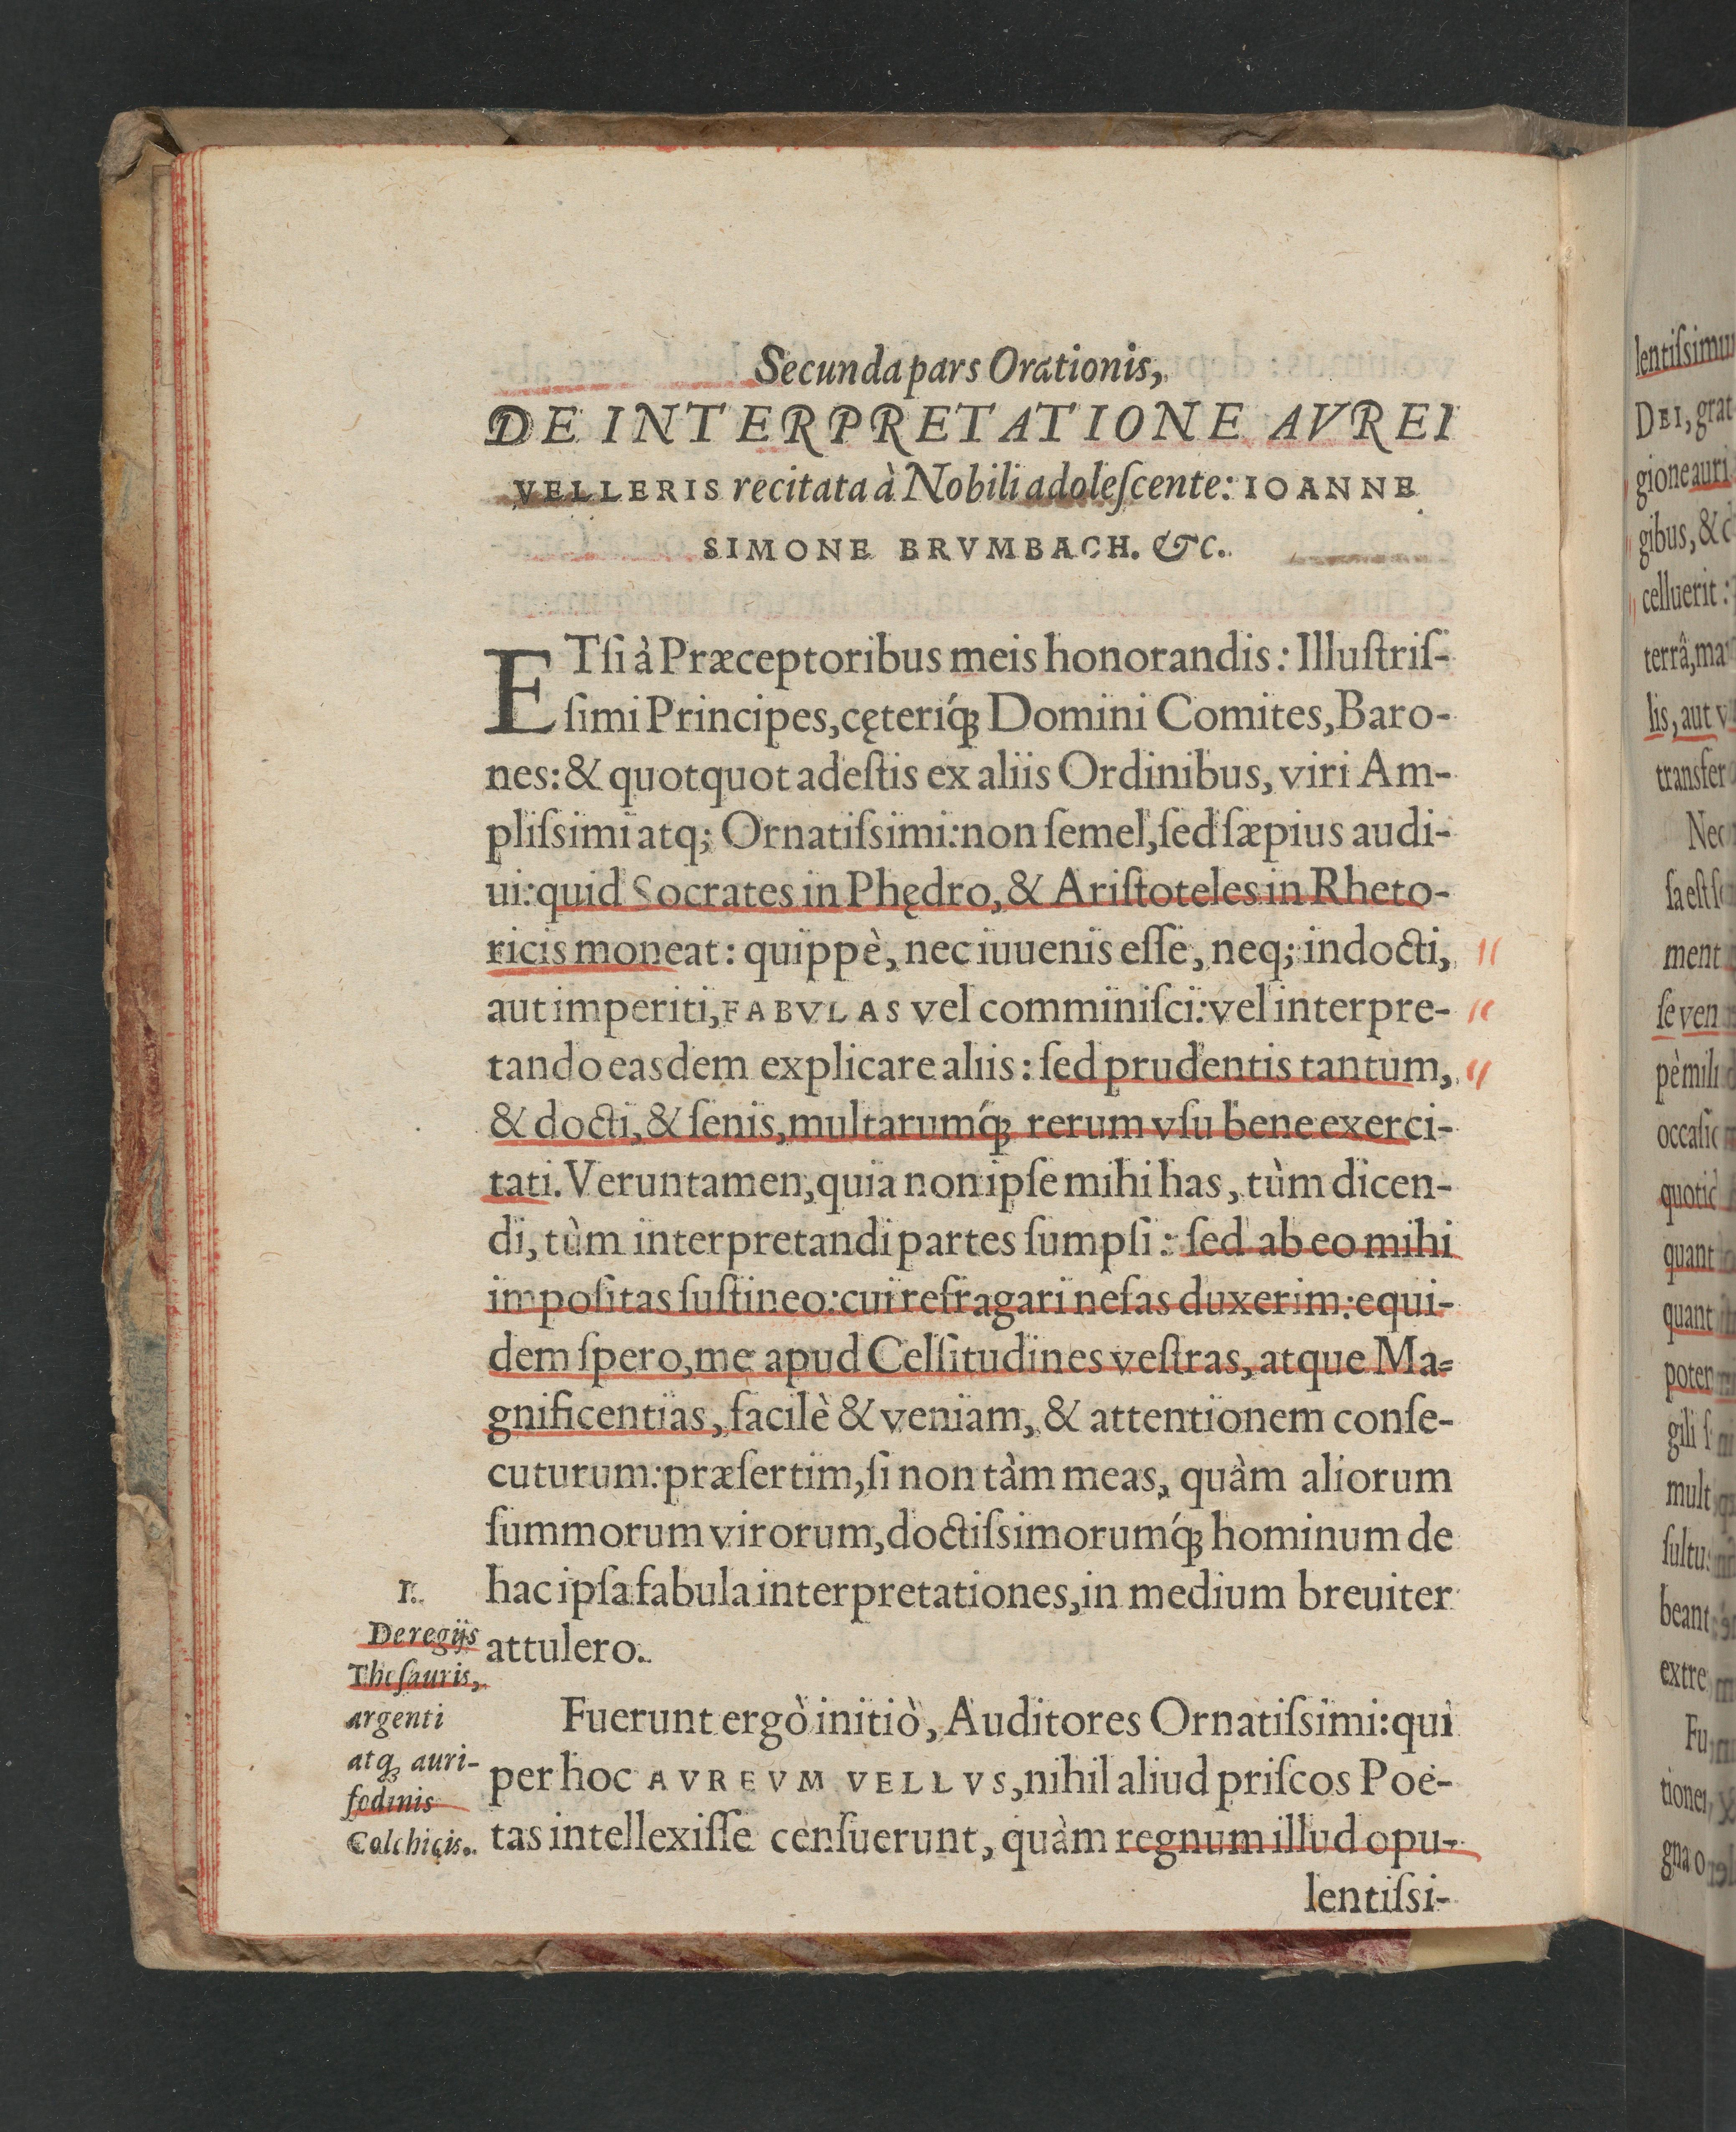 Secunda pars Orationis,
DE INTERPRETATIONE AVREI
VELLERIS recitata à Nobili adoleſcente: IOANNE
SIMONE BRVMBACH. &c.
ETſi à Præceptoribus meis honorandis: Illuſtriſ-
ſimi Principes, cęteriq́ꝫ Domini Comites, Baro-
nes: & quotquot adeſtis ex aliis Ordinibus, viri Am-
pliſsimi atq; Ornatiſsimi: non ſemel, ſed ſæpius audi-
ui: quid Socrates in Phędro, & Ariſtoteles in Rheto-
ricis moneat: quippè, nec iuuenis eſſe, neq; indocti,
aut imperiti, FABVLAS vel comminiſci: vel interpre-
tando easdem explicare aliis: ſed prudentis tantum,
& docti, & ſenis, multarumq́ꝫ rerum vſu bene exerci-
tati. Veruntamen, quia non ipſe mihi has, tùm dicen-
di, tùm interpretandi partes ſumpſi: ſed ab eo mihi
impoſitas ſuſtineo: cui refragari nefas duxerim: equi-
dem ſpero, me apud Celſitudines veſtras, atque Ma-
gnificentias, facilè & veniam, & attentionem conſe-
cuturum: præſertim, ſi non tàm meas, quàm aliorum
ſummorum virorum, doctiſsimorumq́ꝫ hominum de
hac ipſa fabula interpretationes, in medium breuiter
attulero.
I.
De regijs
Theſauris,
argenti
atqꝫ auri-
fodinis
Colchicis.
Fuerunt ergò initiò, Auditores Ornatiſsimi: qui
per hoc AVREVM VELLVS, nihil aliud priſcos Poë-
tas intellexiſſe cenſuerunt, quàm regnum illud opu-
lentiſsi-
lentiſsimu
DEI, grat
gione auri
gibus, & d
celluerit:
terrâ, ma
lis, aut v
transfer
Nec
ſa eſt ſe
ment
ſe ven
pè mili
occaſi
quotid
quant
quant
poten
gili ſ
mult
ſultu
beant
extre
Fu
tione
gna o